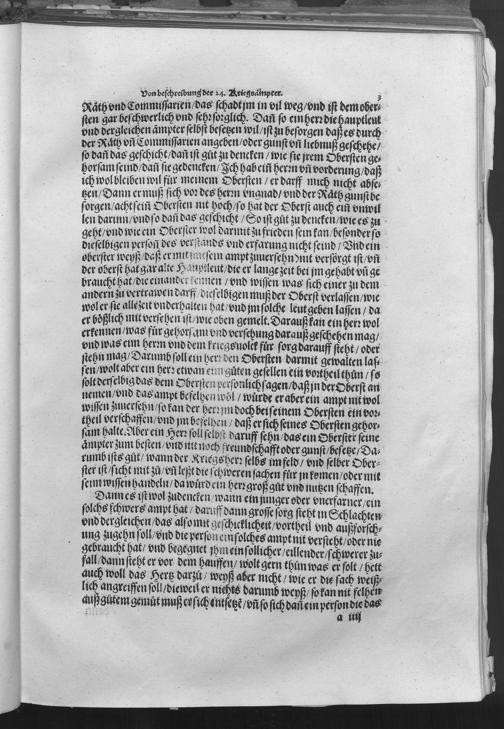 Von beschreibung der 24. Kriegsämpter. 3
Räth vnd Commissarien/das schadt jm in vil weg/vnd ist dem ober-
sten gar beschwerlich vnd sehr sorglich. Dañ so ein herr die hauptleut
vnd dergleichen ämpter selbst besetzen wil/ist zu besorgen daß es durch
der Räth vñ Commissarien angeben/oder gunst vñ liebnuß geschehe/
so dañ das geschicht/dañ ist gůt zu dencken/wie sie jrem Obersten ge-
horsam seind/dañ sie gedencken/Ich hab eiñ herrn vñ vorderung/daß
ich wol bleiben wil für meinem Obersten/er darff mich nicht abse-
tzen/Dann er muß sich vor des herrn vngnad/vnd der Räth gunst be-
sorgen/acht sein Obersten nit hoch/so hat der Oberst auch eiñ vnwil
len darinn/vnd so dañ das geschicht/So ist gůt zu dencken/wie es zů
geht/vnd wie ein Oberster wol darmit zu frieden sein kan/besonder so
dieselbigen person des verstands vnd erfarung nicht seind/Vnd ein
oberster weyß/daß er mit mit sein ampt zuuersehn mit versorgt ist/vñ
der oberst hat gar alte Hauptleut/die er lange zeit bey jm gehabt vñ ge
braucht hat/die einander kennen/vnd wissen was sich einer zu dem
andern zu vertrawen darff/dieselbigen muß der Oberst verlassen/wie
wol er sie alle zeit vnderhalten hat/vnd jm solche leut geben lassen/da
er bößlich mit versehen ist/wie oben gemelt. Darauß kan ein herr wol
erkennen/was für gehorsam vnd versehung darauß geschehen mag/
vnd was eim herrn vnd dem kriegsuolck für sorg darauff steht/oder
stehn mag/Darumb soll ein herr den Obersten darmit gewalten las-
sen/wolt aber ein herr etwan eim gůten gesellen ein vortheil thůn/so
solt derselbig das dem Obersten persönlich sagen/daß jn der Oberst an
nemen/vnd das ampt befelhen wöl/würde er aber ein ampt nit wol
wissen zuuersehn/so kan der herr jm doch bei seinem Obersten ein vor-
theil verschaffen/vnd jm befelhen/daß er sich seines Obersten gehor-
sam halte. Aber ein Herr soll selbst daruff sehn/das ein Oberster seine
ämpter zum besten/vnd nit noch freundschafft oder gunst/besetze/Da-
rumb ists gůt/wann der Kriegsherr selbs im feld/vnd selber Ober-
ster ist/sücht mit zů/vñ leßt die schweren sachen für jn komen/oder mit
seim wissen handeln/da würd ein herr groß gůt vnd nutzen schaffen.
Dann es ist wol zudencken/wann ein junger oder vnerfarner/ein
solchs schwers ampt hat/daruff dann grosse sorg steht in Schlachten
vnd dergleichen/das also mit geschicklicheit/vortheil vnd außforsch-
ung zugehn soll/vnd die person ein solches ampt nit versteht/oder nie
gebraucht hat/vnd begegnet jhm ein sollicher/eillender/schwerer zu-
fall/dann steht er vor dem hauffen/wolt gern thůn was er solt/hett
auch woll das Hertz darzů/weyß aber nicht/wie er die sach weiß-
lich angreiffen soll/dieweil er nichts darumb weyß/so kan mit selhen
auß gůtem gemüt muß er sich entsetzẽ/vñ so sich dañ ein person die das
a iiij